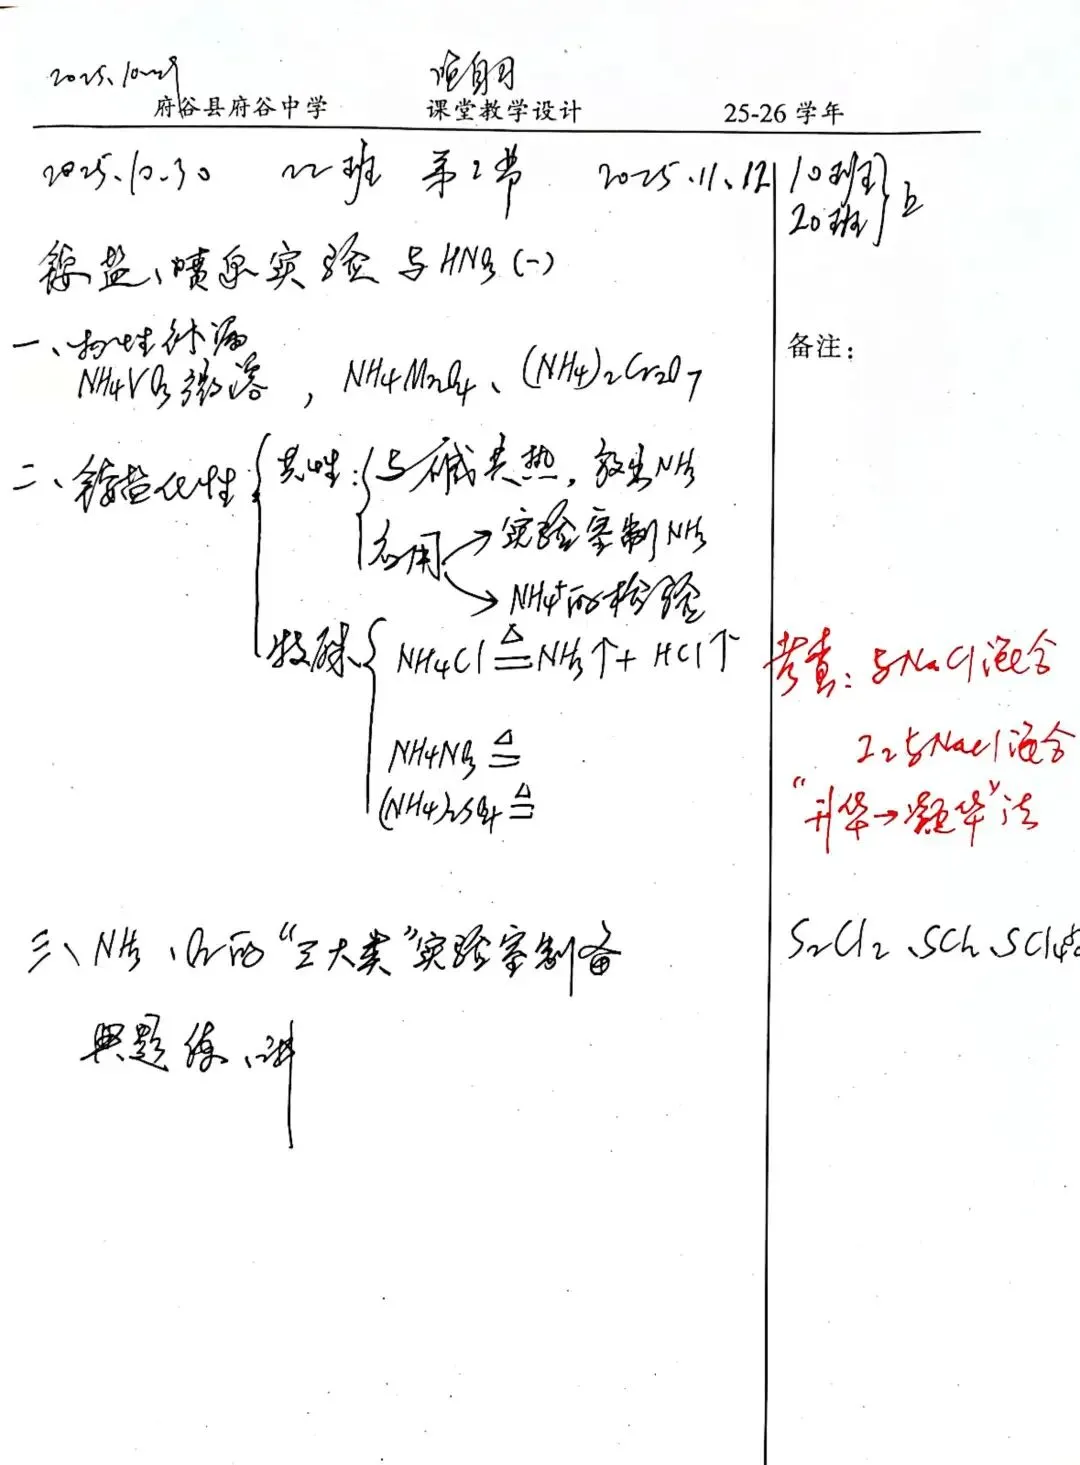 2025.10.29
府谷县府谷中学 课堂教学设计 25-26 学年
2025.10.30 22班 第2节 2025.11.12 10班 20班 } 上
铵盐、喷泉实验与HNO3(一)
一、物性补漏 备注:
NH4VO3微溶, NH4MnO4、(NH4)2Cr2O7
二、铵盐化性 { 共性: { 与碱共热,放出NH3
应用 → 实验室制NH3
→ NH4+的检验
特殊 { NH4Cl ≜ NH3↑ + HCl↑ 考查:与NaCl混合
NH4NO3 ≜ I2与NaCl混合
(NH4)2SO4 ≜ “升华→凝华”法
三、NH3、O2的“三大类”实验室制备 S2Cl2、SCl2、SCl4
典题练、讲